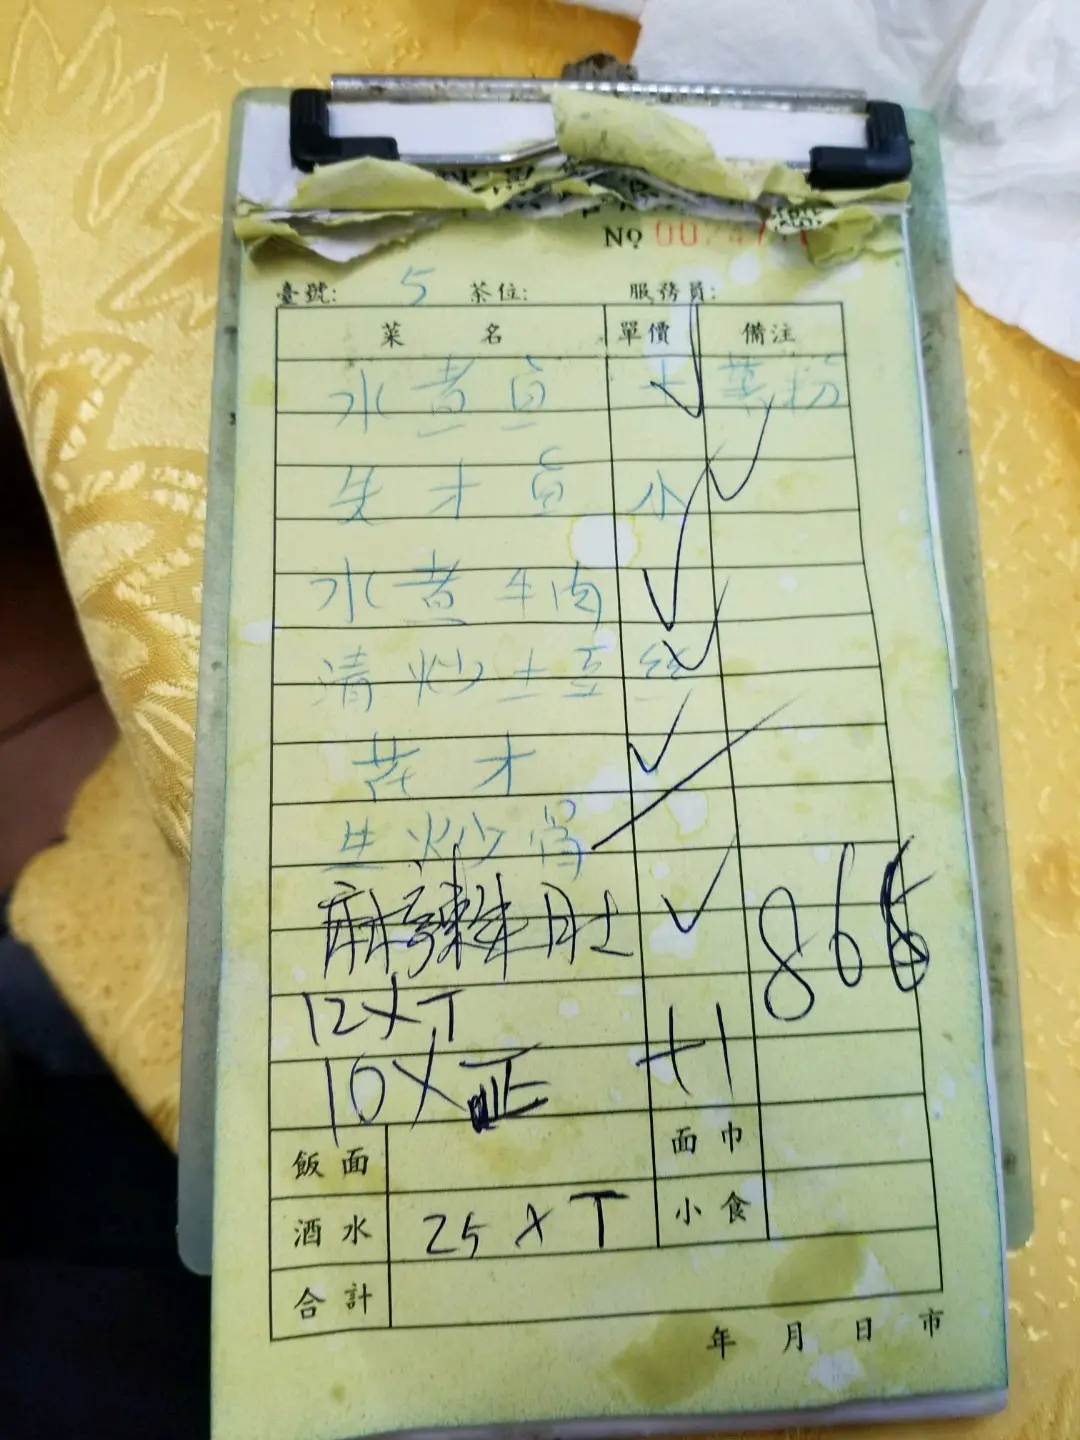 No
臺號: 5 茶位: 服務員:
菜 名 單價 備注
水煮
才 小
水煮牛肉
清炒土豆丝
才
生炒骨
麻辣牛肚
866
12X丅
10X正 +1
飯面 面巾
酒水 25X丅 小食
合計
年 月 日 市